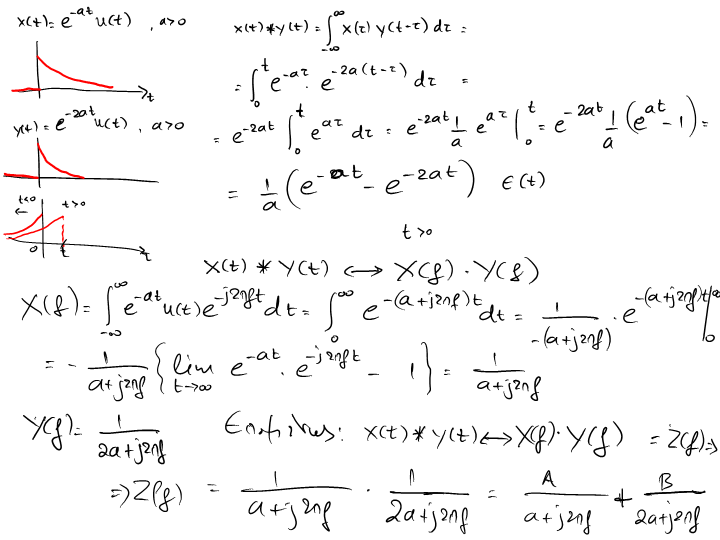 x(t) = e^{-at} u(t) , a>0
t
y(t) = e^{-2at} u(t) , a>0
t<0 t>0
←
0 t t
x(t) * y(t) = ∫_{-∞}^{∞} x(τ) y(t-τ) dτ =
= ∫_0^t e^{-aτ} · e^{-2a(t-τ)} dτ =
= e^{-2at} ∫_0^t e^{aτ} dτ = e^{-2at} 1/a e^{aτ} |_0^t = e^{-2at} 1/a (e^{at} - 1) =
= 1/a (e^{-at} - e^{-2at}) ε(t)
t>0
x(t) * y(t) ↔ X(f) · Y(f)
X(f) = ∫_{-∞}^{∞} e^{-at} u(t) e^{-j2πft} dt = ∫_0^∞ e^{-(a+j2πf)t} dt = 1/-(a+j2πf) · e^{-(a+j2πf)t} |_0^∞
= - 1/(a+j2πf) { lim_{t→∞} e^{-at} · e^{-j2πft} - 1 } = 1/(a+j2πf)
Y(f) = 1/(2a+j2πf) : x(t) * y(t) ↔ X(f) · Y(f) = Z(f) ⇒
⇒ Z(f) = 1/(a+j2πf) · 1/(2a+j2πf) = A/(a+j2πf) + B/(2a+j2πf)